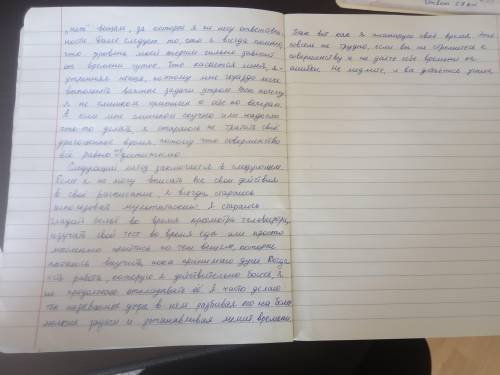 „нет" вещам, за которые я не несу ответствен-
ности. Далее следует то, что я всегда помню,
что уровень моей энергии сильно зависит
от времени суток. Что касается меня, я -
утренняя пташка, поэтому мне гораздо легче
выполнять важные задачи утром. Вот почему
я не слишком критична к себе по вечерам.
А если мне слишком скучно или надоело
что-то делать, я стараюсь не тратить своё
драгоценное время, потому что совершенство
всё равно не достижимо.
Следующий метод заключается в следующем.
Если я не могу вписать все свои действия
в своё расписание, я всегда стараюсь
использовать мультитаскинг. Я стараюсь
гладить бельё во время просмотра телевизора,
изучать свой тест во время еды или просто
мысленно пройтись по тем вещам, которые
пытаюсь выучить, пока принимаю душ. Когда
есть работа, которую я действительно боюсь, я
не продолжаю откладывать её. Я часто делаю
утра в нем, разбивая его на более
мелкие задачи и устанавливая лимит времени.
Вот вот как я планирую своё время. Это
совсем не трудно, если вы не стремитесь к
совершенству и не даёте себе времени на
ошибки. Не медлите, и вы добьётесь успеха.
Ответ